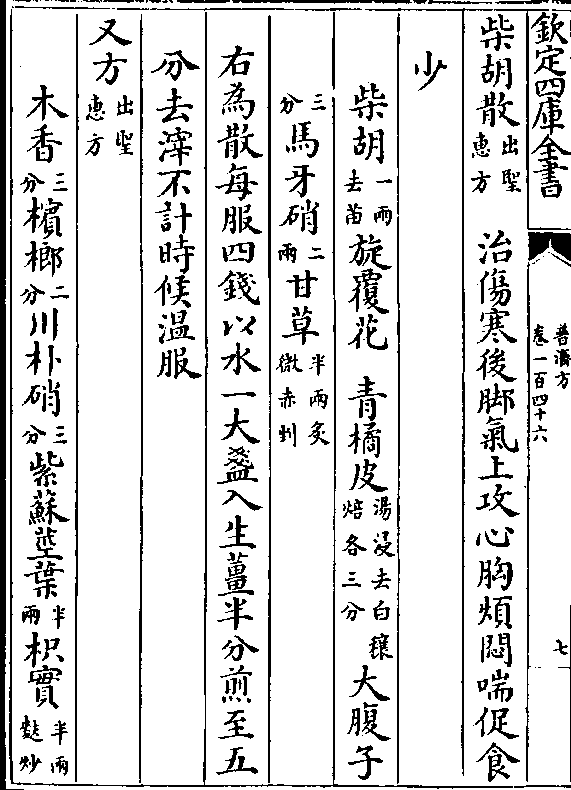 欽定四庫全書
普濟方
卷一百四十六
七
柴胡散出聖惠方 治傷寒後脚氣上攻心胸煩悶喘促食
少
柴胡一兩去苗 旋覆花 青橘皮湯浸去白穰焙各三分 大腹子
三分 馬牙硝二兩 甘草半兩炙微赤剉
右為散每服四錢以水一大盞入生薑半分煎至五
分去滓不計時候温服
又方出聖惠方
木香三分 檳榔二分 川朴硝三分 紫蘇莖葉半兩 枳實半兩麩炒